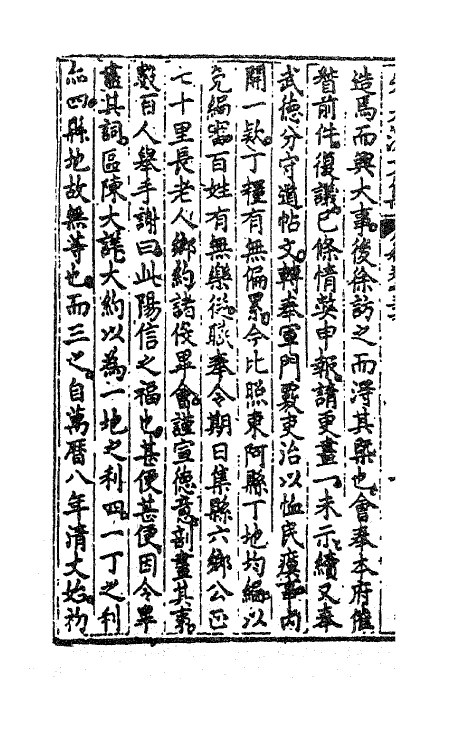 造焉而興大事後徐訪之而得其槩也會奉本府催
督前件復議已條情熒申報請更畫一未示續又奉
武德分守道帖文轉奉軍門覈吏治以恤民瘼事內
開一欵丁糧有無偏累今比照東阿縣丁地均編以
免編審百姓有無樂從聀奉令期日集縣六鄉公正
七十里長老人鄉約諸伇畢會謹宣德意剖盡其事
數百人舉手謝曰此陽信之福也甚便甚便因令畢
盡其詞區陳大謊大約以為一地之利四一丁之利
四縣地故無等也而三之自萬曆八年清丈始初